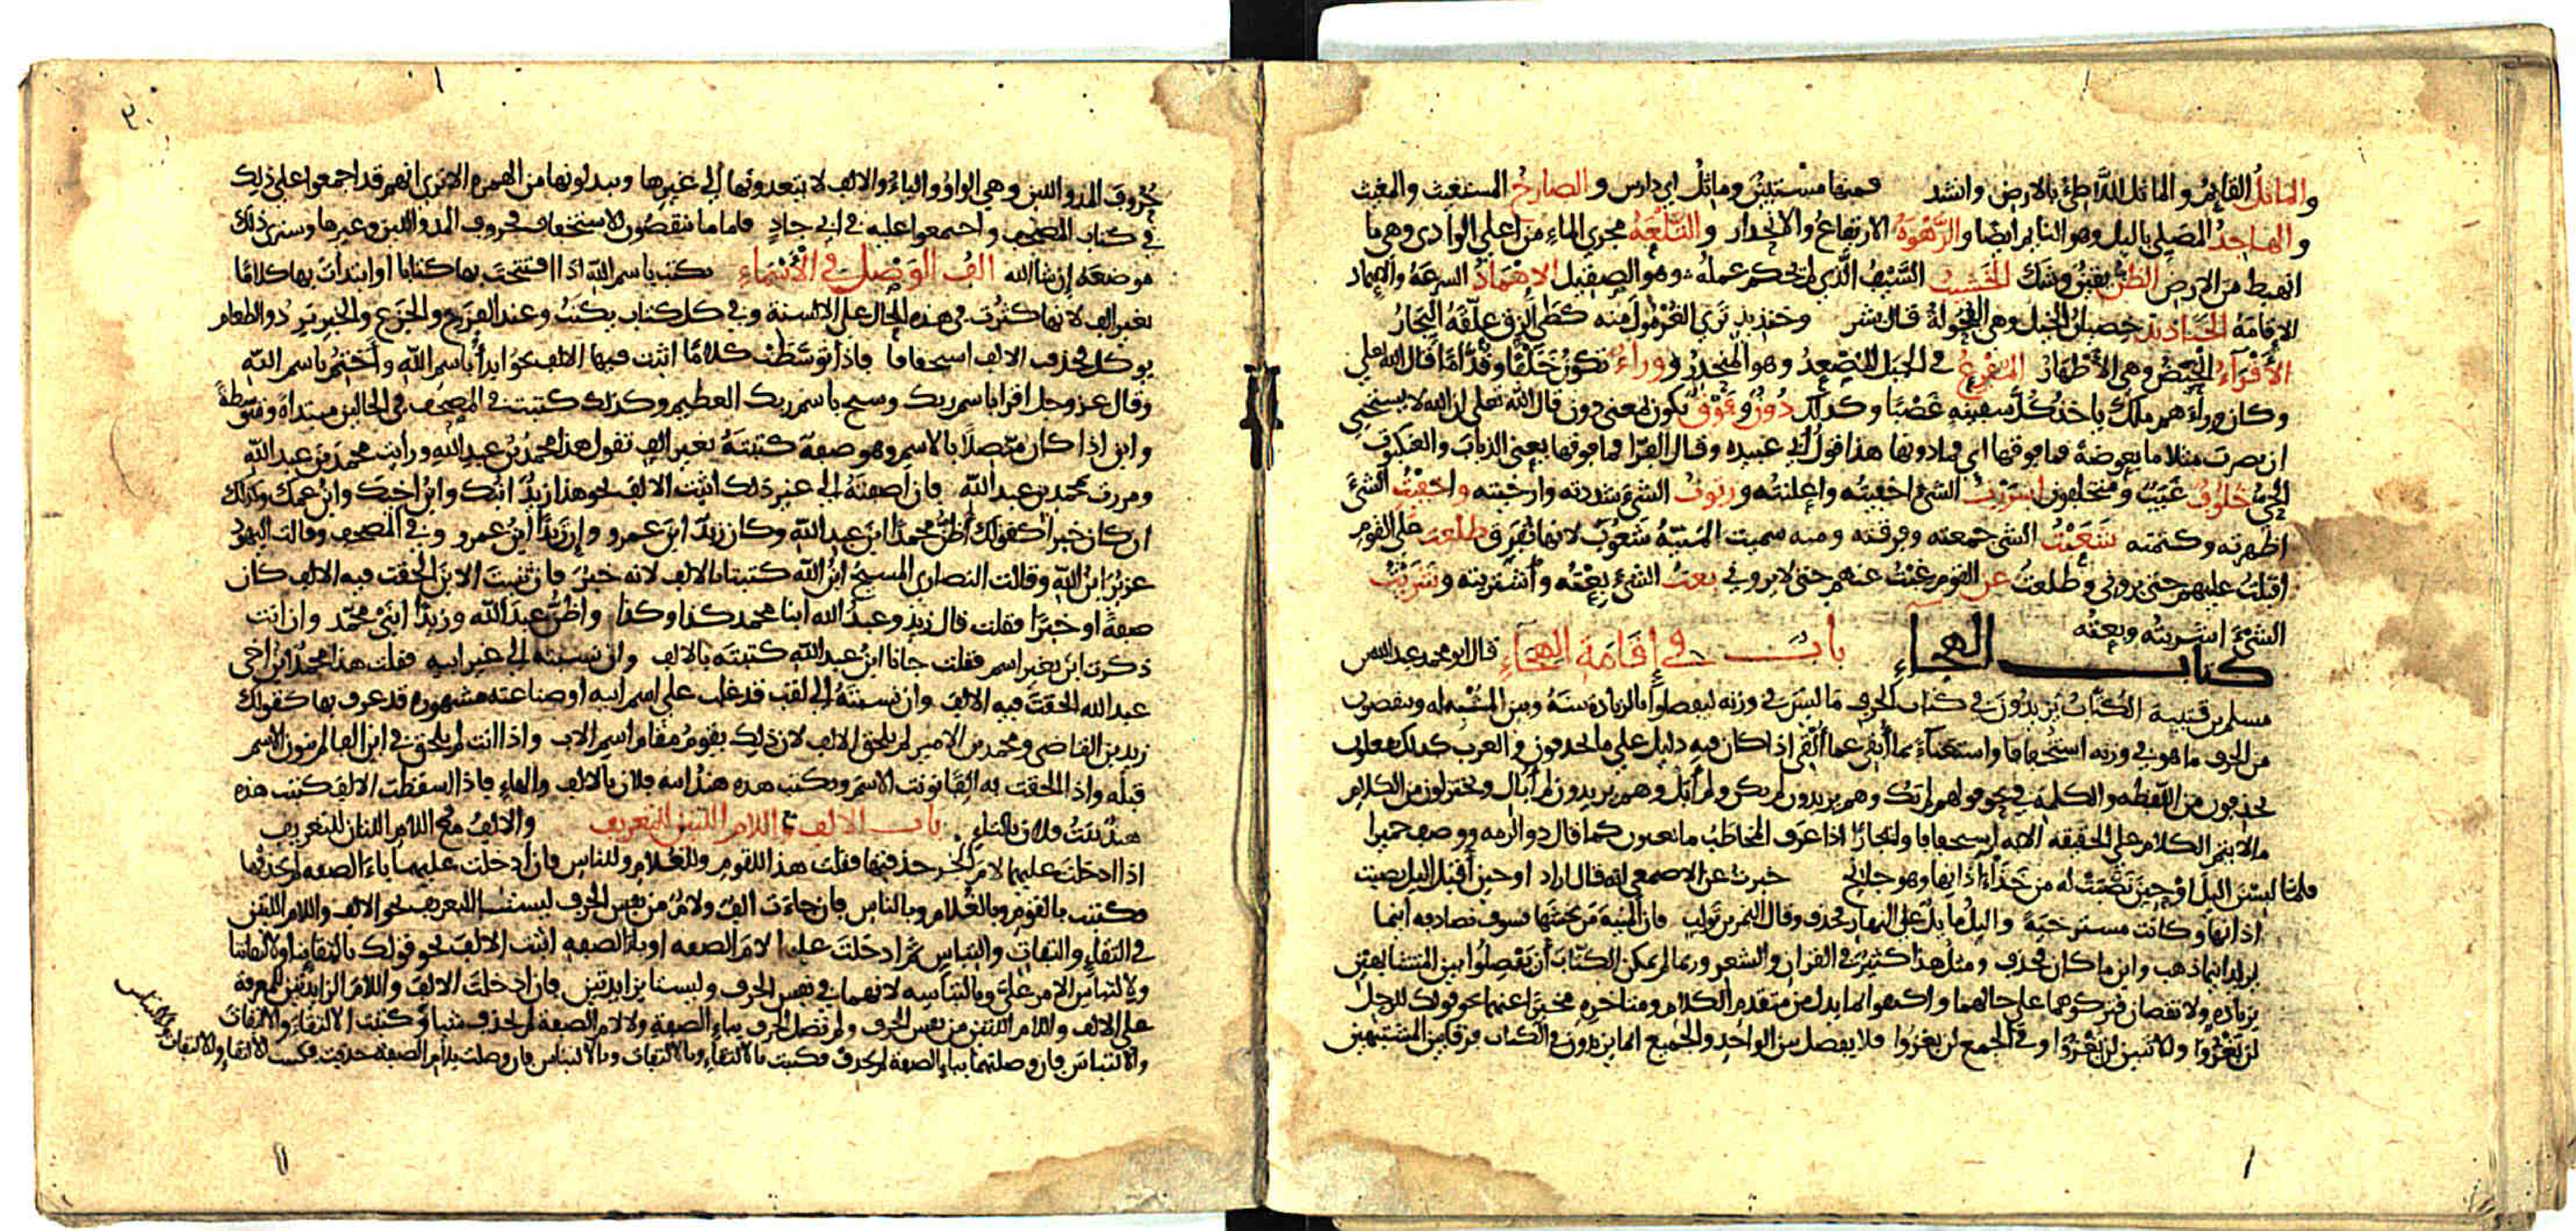 والماثل القائم والماثل اللاطئ بالارض وانشد فمنها مستبين وماثل اي دارس والصارخ المستغيث والمغيث
والهاجد المصلي بالليل وهو النائم ايضا والرهوة الارتفاع والانحدار والتلعة مجرى الماء من اعلي الوادي وهي ما
انهبط من الارض الظن يقين وشك الخشيب السيف الذي لم يحكم عمله وهو الصقيل الاهماد السرعة والاهماد
الاقامة الخناذيذ خصيان الخيل وهي الفحولة قال بشر وخنذيذ ترى الغرمول منه كطي الزق علقه التجار
الاقراء الحيض وهي الاطهار المفرع في الجبل المصعد وهو المنحدر ووراء تكون خلفا وقداما قال الله علي
وكان وراءهم ملك ياخذ كل سفينة غصبا وكذلك دون وفوق تكون بمعني دون قال الله تعلي ان الله لا يستحيي
ان يضرب مثلا ما بعوضة فما فوقها اي فما دونها هذا قول ابي عبيده وقال الفرا فما فوقها يعني الذباب والعنكبوت
الحي خلوف غيب ومتخلفون اسررت الشئ اخفيته واعلنته ورتوت الشئ شددته وارخيته واخفيت الشئ
اظهرته وكتمته شعبت الشي جمعته وفرقته ومنه سميت المنية شعوب لانها تفرق طلعت علي القوم
اقبلت عليهم حتى يروني وطلعت عن القوم غبت عنهم حتى لا يروني بعت الشئ بعته واشتريته وشريت
الشئ اشتريته وبعته
كتاب الهجاء باب في اقامة الهجاء قال ابو محمد عبد الله بن
مسلم بن قتيبة الكتاب يزيدون في كتاب الحرف ما ليس في وزنه ليفصلوا بالزيادة بينه وبين المشبه له وينقصون
من الحرف ما هو في وزنه استخفافا واستغناء بما ابقي عما القي اذا كان فيه دليل علي ما يحذفون والعرب كذلك يفعلون
يحذفون من اللفظه والكلمة في نحو قولهم لم يك وهم يريدون لم يكن ولم ابل وهم يريدون لم ابال ويختزلون من الكلام
ما لا يتم الكلام علي الحقيقه الا به استخفافا وايجازا اذا عرف المخاطب ما تعنون كما قال ذو الرمه ووصف حميرا
فلما لبسن الليل او حين نصبت له من خذا اذانها وهو جانح خبرت عن الاصمعي انه قال اراد او حين اقبل الليل نصبت
اذانها وكانت مسترخية والليل مايل علي النهار فحذف وقال النمر بن تولب فان المنية من يخشها فسوف تصادفه اينما
يريد اينما ذهب واين ما كان فحذف ومثل هذا كثير في القران والشعر وربما لم يمكن الكتاب ان يفصلوا بين المتشابهين
بزياده ولا نقصان فتركوهما علي حالهما واكتفوا بما يدل من متقدم الكلام ومتاخره مخبرا عنهما نحو قولك للرجل
لن تغزوا وللاثنين لن تغزوا وفي الجمع لن تغزوا فلا يفصل بين الواحد والجميع انما يزيدون في الكتاب فرقا بين المتشبهين
٣٠
حروف المد واللين وهي الواو والياء والالف لا يتعدونها الي غيرها ويبدلونها من الهمزه الا ترى انهم قد اجمعوا علي ذلك
في كتاب المصحف واجتمعوا عليه في ابي جاد فاما ما ينقصون للاستخفاف فحروف المد واللين وغيرها وسترى ذلك
موضعه ان شا الله الف الوصل في الاسماء تكتب باسم الله اذا افتتحت بها كتابا او ابتدات بها كلاما
بغير الف لانها كثرت في هذه الحال علي الالسنة وفي كل كتاب يكتب وعند الفزع والجزع والخبر يرد والطعام
يوكل فحذفت الالف استخفافا فاذا توسطت كلاما اثبت فيها الالف نحو ابدا باسم الله واختم باسم الله
وقال عز وجل اقرا باسم ربك وسبح باسم ربك العظيم وكذلك كتبت في المصحف في الحالين مبتداة ومتوسطة
وابن اذا كان متصلا بالاسم وهو صفة كتبته بغير الف تقول هذا محمد بن عبد الله ورايت محمد بن عبد الله
ومررت بمحمد بن عبد الله فان اضفته الي غير ذلك اثبت الالف نحو هذا زيد ابنك وابن اخيك وابن عمك وكذلك
ان كان خبرا كقولك اظن محمدا ابن عبد الله وكان زيد ابن عمرو وان زيدا ابن عمرو وفي المصحف وقالت اليهود
عزير ابن الله وقالت النصارى المسيح ابن الله كتبتا بالالف لانه خبر فان ثنيت الابن الحقت فيه الالف كان
صفة او خبرا فقلت قال زيد وعبد الله ابنا محمد كذا وكذا واظن عبد الله وزيدا ابني محمد وان انت
ذكرت ابن بغير اسم فقلت جانا ابن عبد الله كتبته بالالف وان نسبته الي غير ابيه فقلت هذا محمد ابن اخي
عبد الله الحقت فيه الالف وان نسبته الي لقب قد غلب علي اسم ابيه او صناعته مشهوره قد عرف بها كقولك
زيد بن القاضي ومحمد بن الامير لم يلحق الالف لان ذلك يقوم مقام اسم الاب واذا انت لم يلحق في ابن الفا لم تنون الاسم
قبله واذا الحقت به الفا نونت الاسم وتكتب هذه هند ابنة فلان بالالف والهاء فاذا اسقطت الالف كتبت هذه
هند بنت فلان بالتاء باب الالف مع اللام اللتين للتعريف والالف مع اللام اللتان للتعريف
اذا ادخلت عليهما لام الجر حذفتها فقلت هذا للقوم وللغلام وللناس فان ادخلت عليهما باء الصفه لم تحذفها
فكتبت بالقوم وبالغلام وبالناس فان جاءت الف ولام من نفس الحرف ليستا للتعريف نحو الالف واللام اللتين
في التقاء والتفات والتباس ثم ادخلت عليها لام الصفه او باء الصفه اثبت الالف نحو قولك بالتقاينا ولالتقاينا
ولالتباس الامر علي وبالتباسه لانهما في نفس الحرف وليستا بزايدتين فان ادخلت الالف واللام الزايدتين للمعرفة
علي الالف واللام اللتين من نفس الحرف ولم تصل الحرف بباء الصفة ولا لام الصفة لم تحذف شيا وكتبت الالتقاء والالتفات
والالتباس فان وصلتها بباء الصفة لم تحذف فكتبت بالالتقاء وبالالتفات وبالالتباس فان وصلت بلام الصفة حذفت فكتبت للالتقاء وللالتفات
وللالتباس